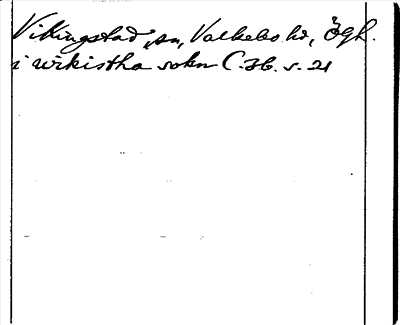 Vikingstad, sn, Valkebo hd, Ögl.
i wikistha sokn C. HB. s. 21